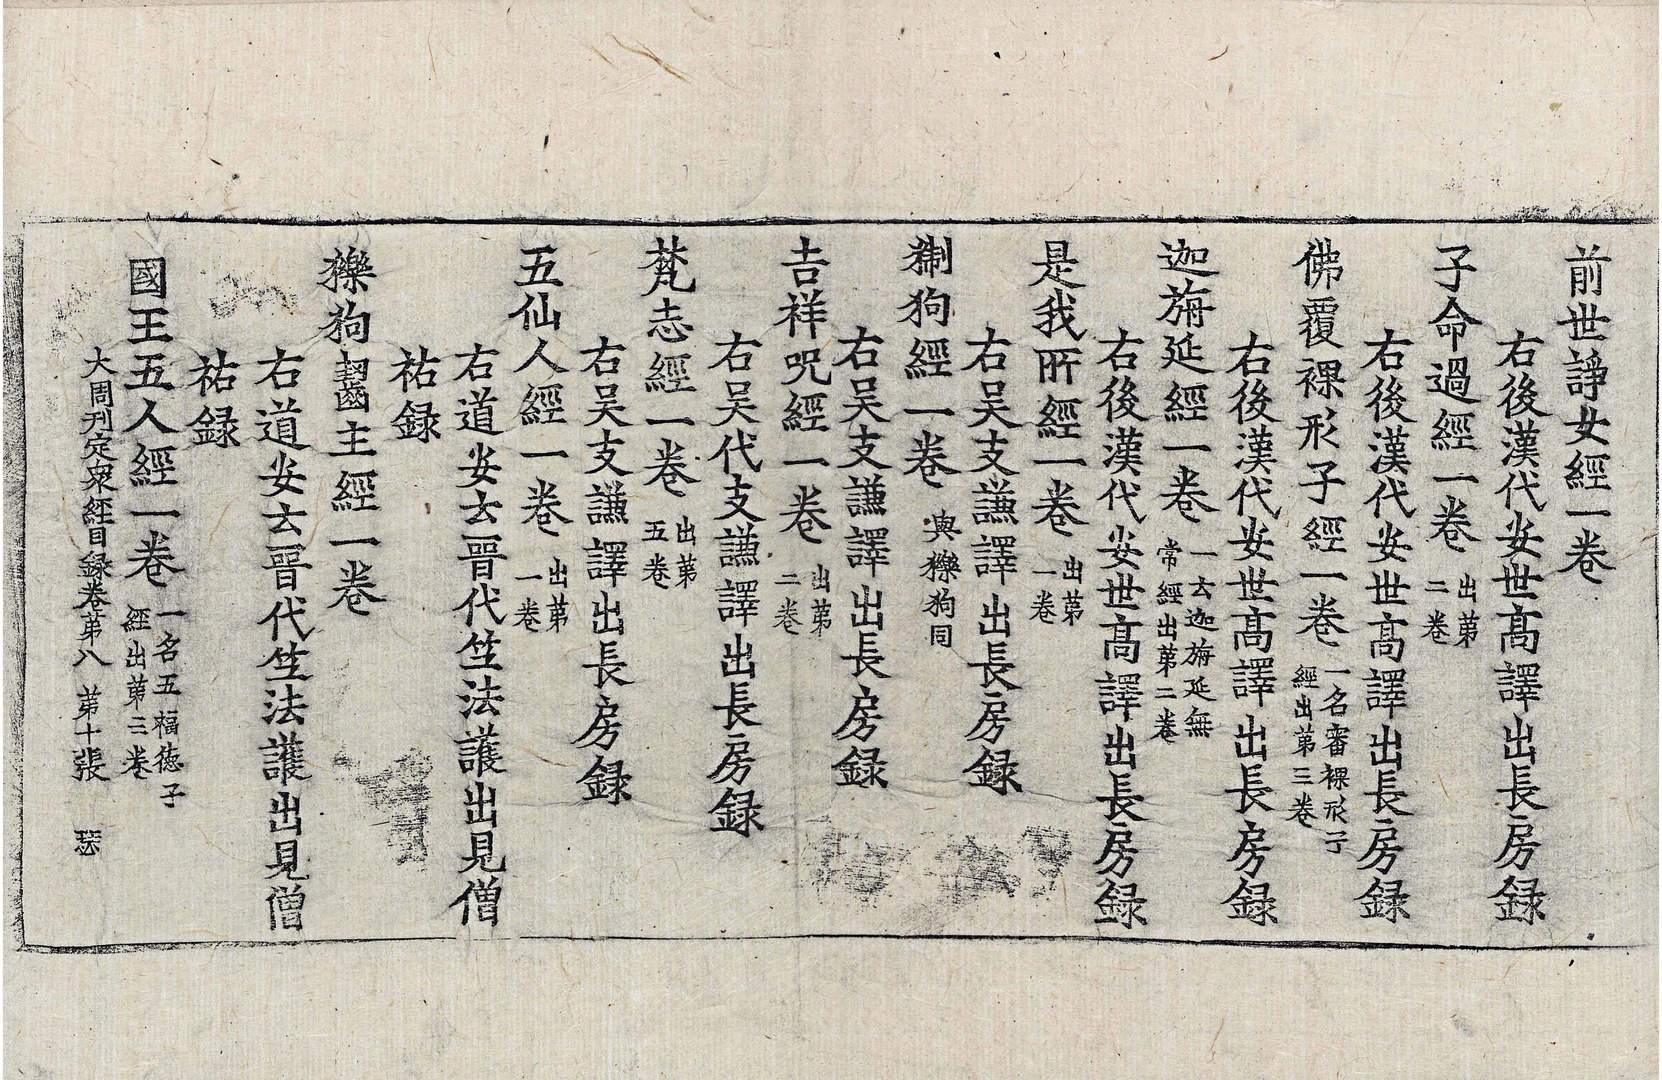 前世諍女經一卷
右後漢代安世髙譯出長房録
子命過經一卷 出第二卷
右後漢代安世髙譯出長房録
佛覆裸形子經一卷 一名審裸形子經出第三卷
右後漢代安世髙譯出長房録
迦旃延經一卷 一云迦旃延無常經出第二卷
右後漢代安世髙譯出長房録
是我所經一卷 出第一卷
右吴支謙譯出長房録
猘狗經一卷 與㹱狗同
右吴支謙譯出長房録
吉祥呪經一卷 出第二卷
右吴代支謙譯出長房録
梵志經一卷 出第五卷
右吴支謙譯出長房録
五仙人經一卷 出第一卷
右道安云晉代竺法護出見僧
祐録
㹱狗齧主經一卷
右道安云晉代竺法護出見僧
祐録
國王五人經一卷 一名五福德子經出第三卷
大周刊定衆經目録卷第八 第十張